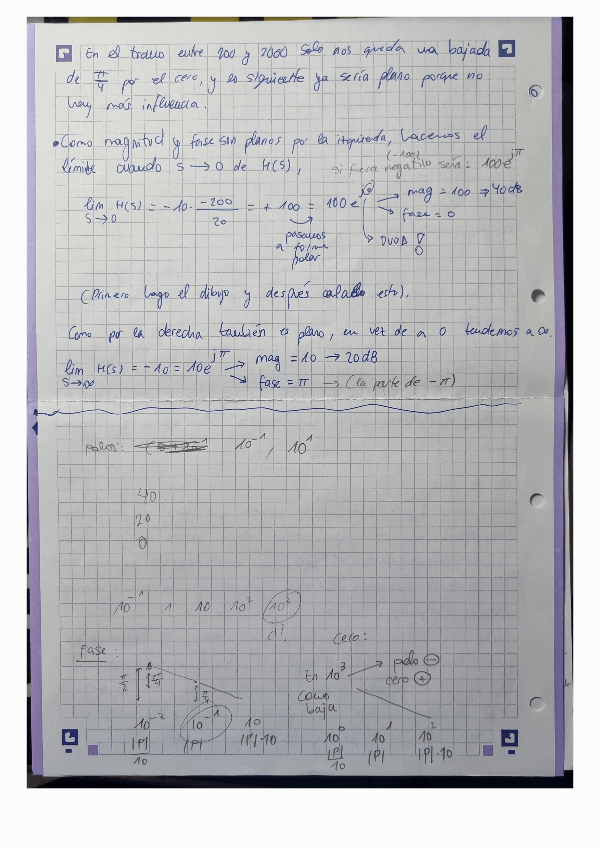 En el tramo entre 200 y 2000 solo nos queda una bajada
de π/4 por el cero, y lo siguiente ya sería plano porque no
hay más influencia.
6
• Como magnitud y fase son planos por la izquierda, hacemos el
límite cuando S → 0 de H(s), si fuera negativo sería: 100e^jπ
(-100)
lim H(s) = -10 · -200/20 = + 100 = 100 e^j0 → mag = 100 → 40 dB
S→0 → fase = 0
pasamos
a forma
polar
→ DUDA
(Primero hago el dibujo y después calculo esto).
Como por la derecha también es plano, en vez de a 0 tendemos a ∞.
lim H(s) = -10 = 10e^jπ → mag = 10 → 20 dB
S→∞ → fase = π → (la parte de -π)
polos: 10^-1, 10^1
40
20
0
10^-1 1 10 10^2 10^3
Fase: cero:
π/2 π/4 π/4
En 10^3 → polo ⊖
cero ⊕
como
baja
10^-2 10^-1 10 10^0 10^1 10^2
|P|/10 |P| |P|·10 |P|/10 |P| |P|·10